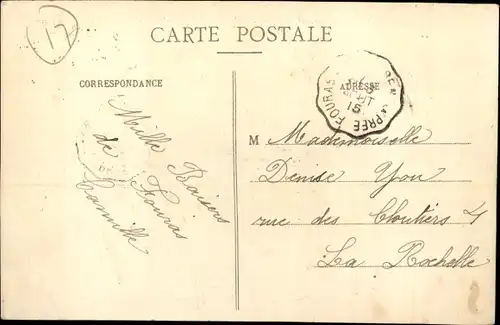 17
CARTE POSTALE
CORRESPONDANCE
ADRESSE
Mille Baisers
de Fouras
Camille
FOURAS
15
M Mademoiselle
Denise You
rue des Cloutiers 4
La Rochelle